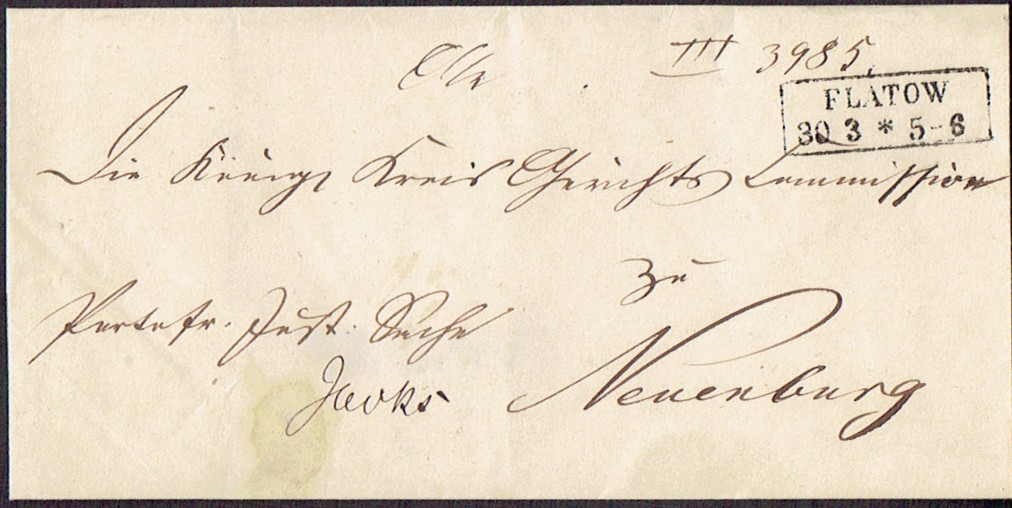 III 3985.
FLATOW
30 3 * 5-6
Die Königl Kreis Gerichts Commission
zu
Portofr. Just. Sache
Neuenburg